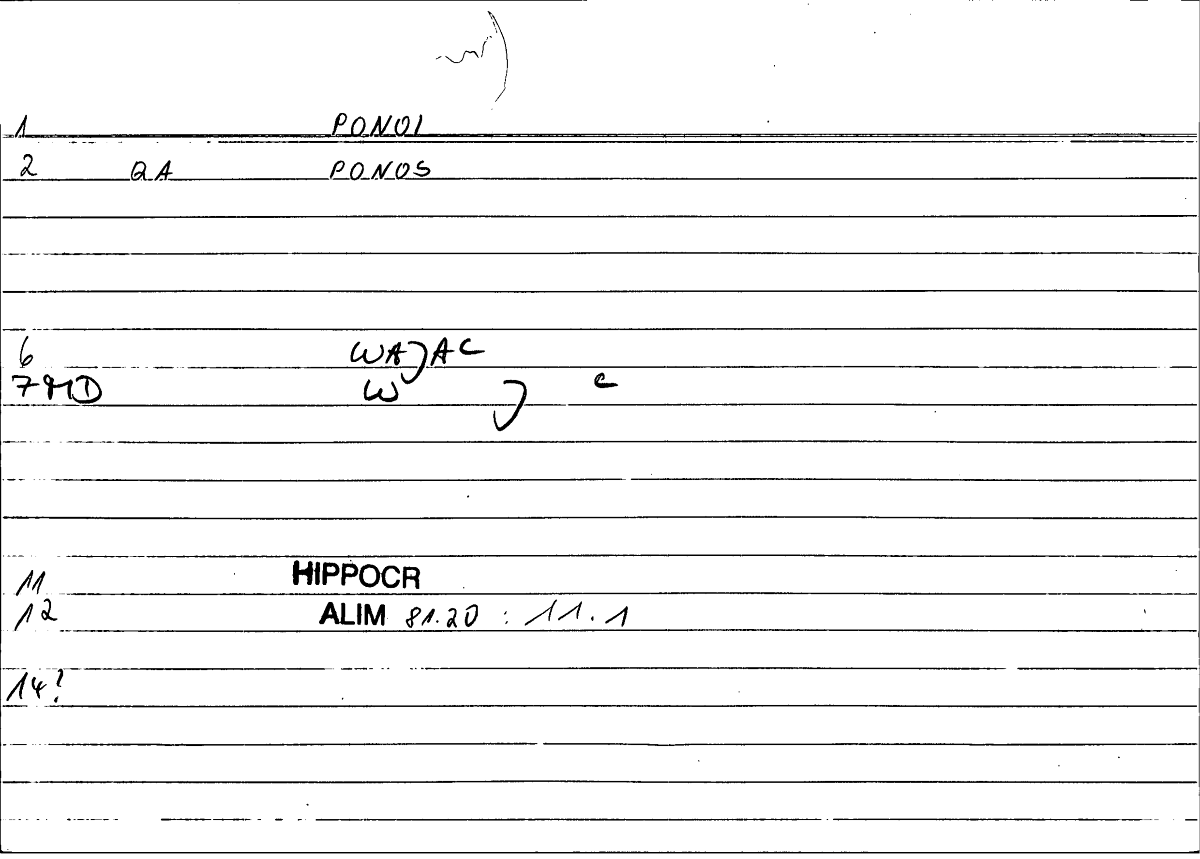 1 PONOI
2 QA PONOS
6 WAJAC
7 MD W J C
11 HIPPOCR
12 ALIM 81.20 : 11.1
14!